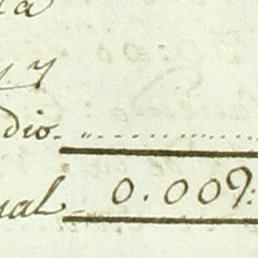 y 7
dio
ual 0.009: